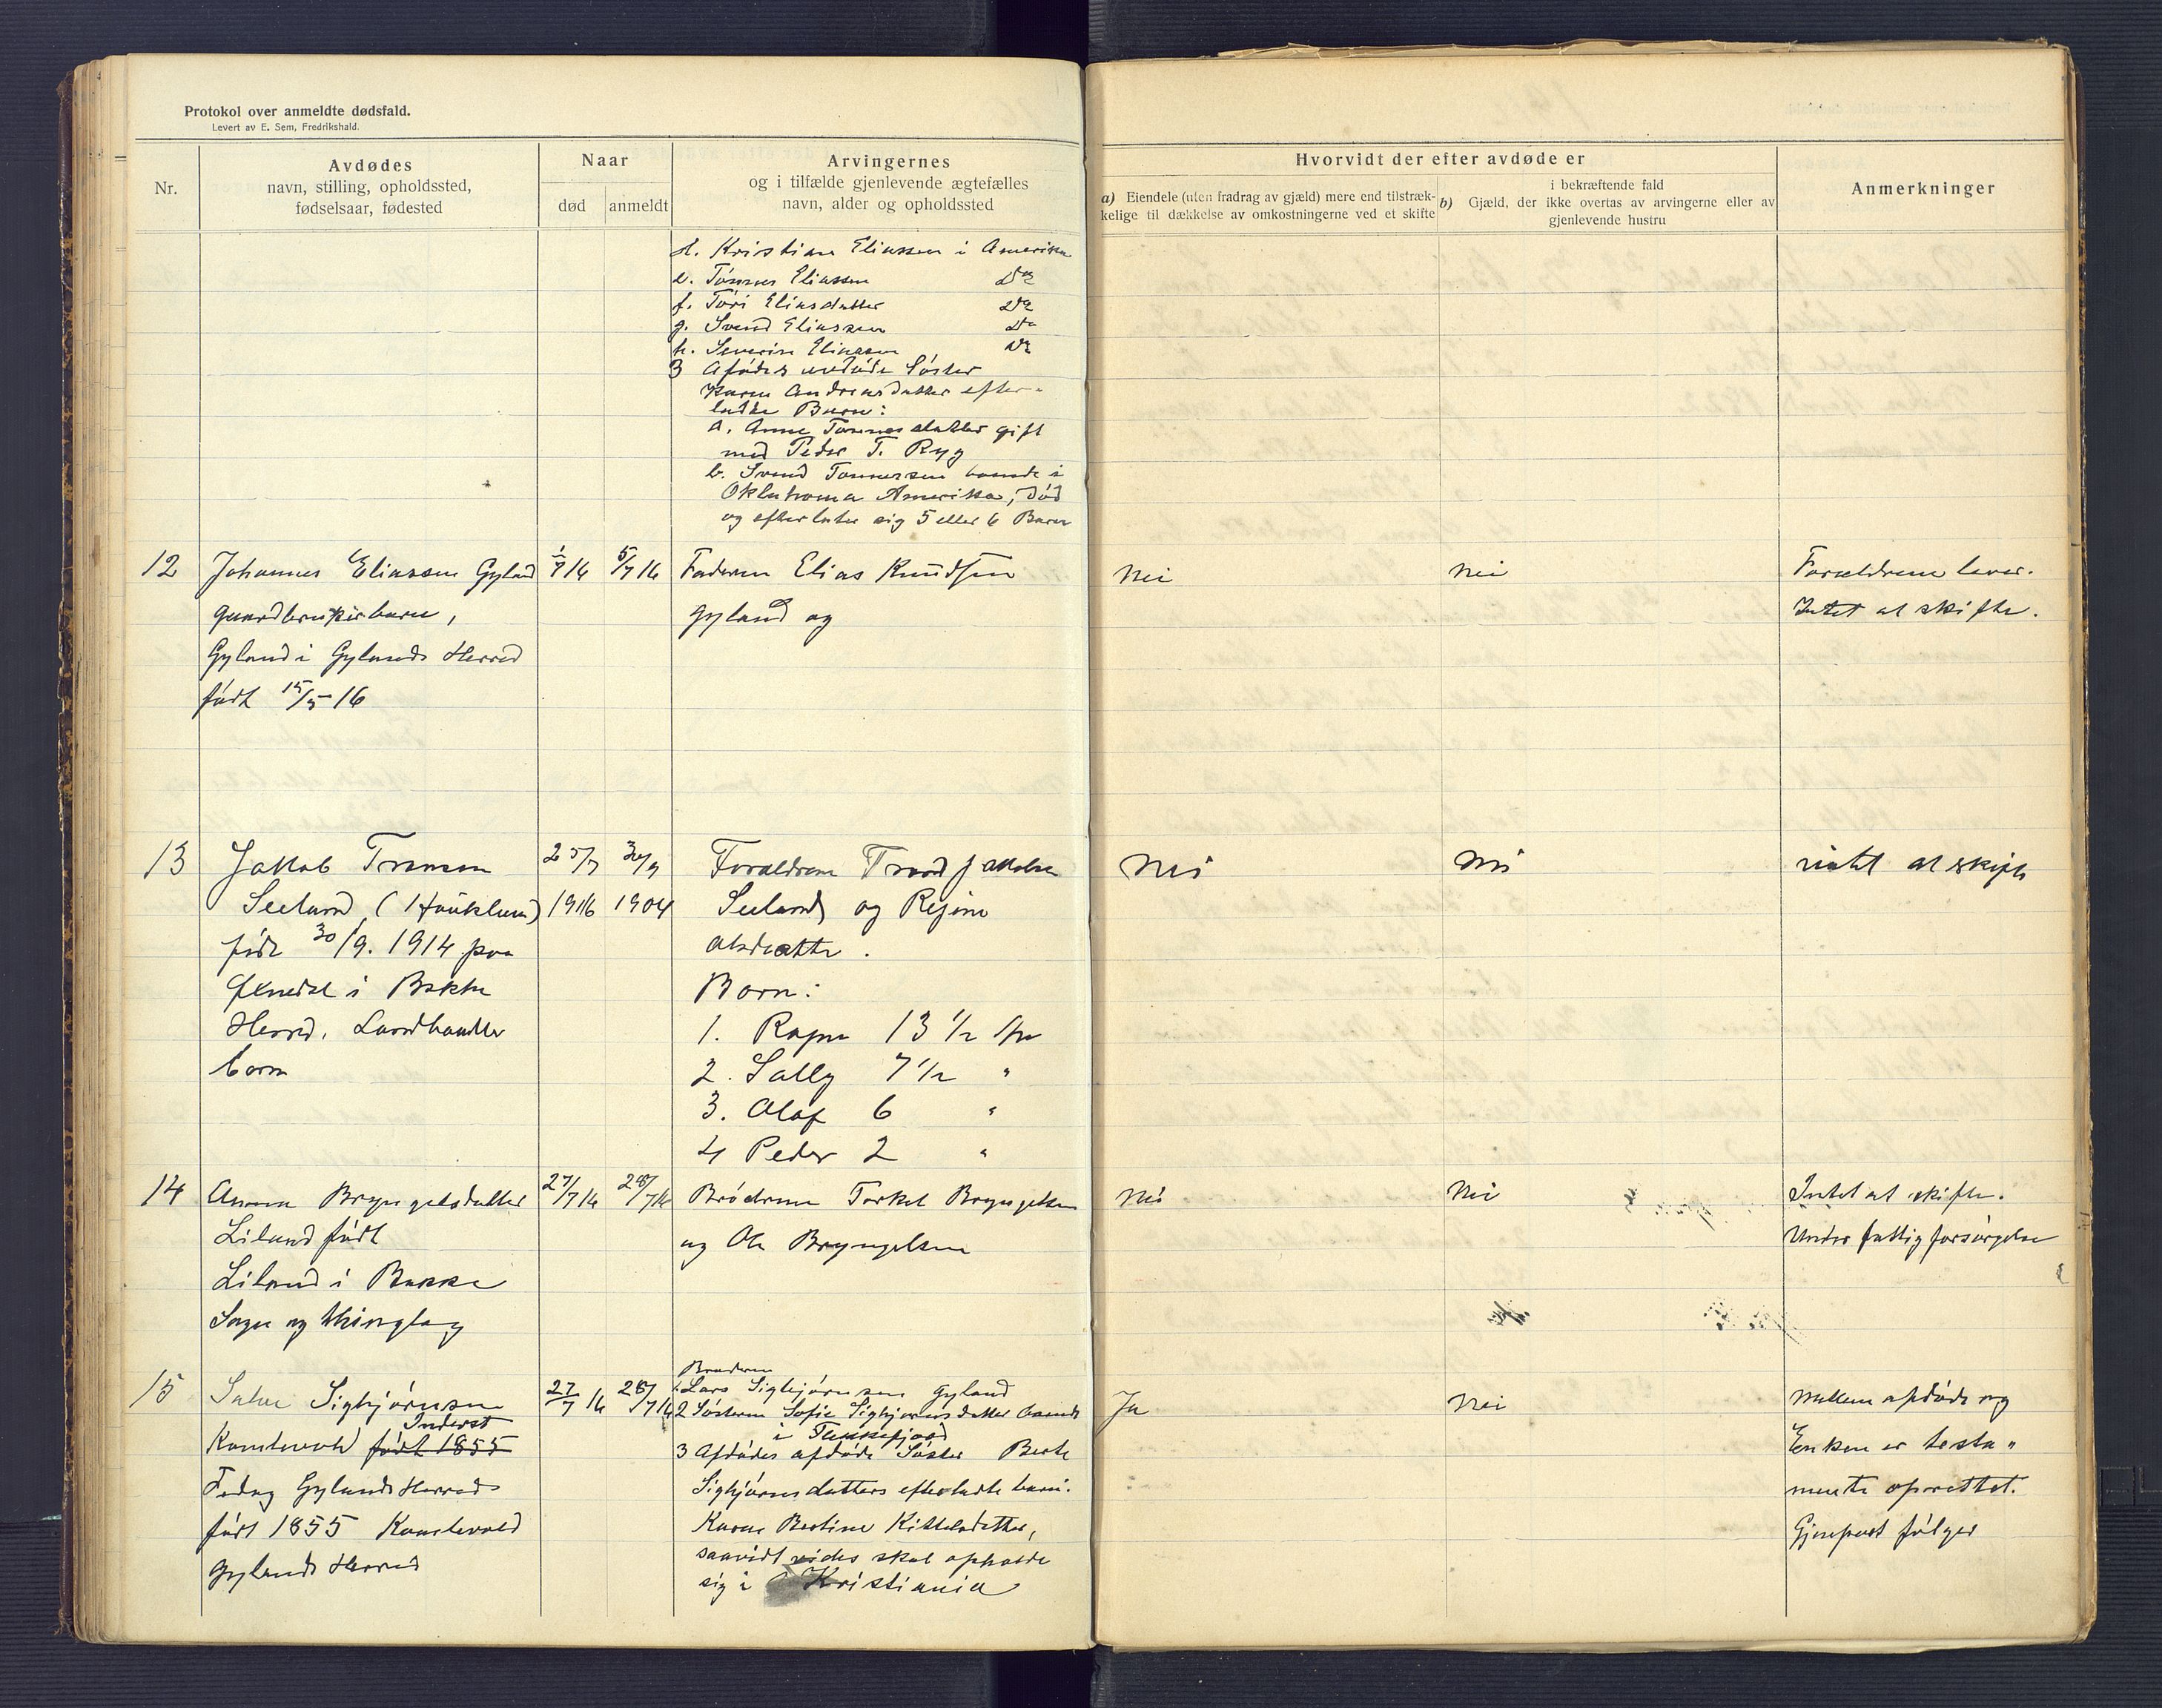 Protokol over anmeldte dødsfald.
Levert av E. Sem, Fredrikshald.
Nr.
Avdødes
navn, stilling, opholdssted,
fødselsaar, fødested
Naar
død
anmeldt
Arvingernes
og i tilfælde gjenlevende ægtefælles
navn, alder og opholdssted
Hvorvidt der efter avdøde er
a) Eiendele (uten fradrag av gjæld) mere end tilstræk-
kelige til dækkelse av omkostningerne ved et skifte
i bekræftende fald
b) Gjæld, der ikke overtas av arvingerne eller av
gjenlevende hustru
Anmerkninger
d. Kristian Eliassen i Amerika
e. Tønnes Eliassen Do
f. Tori Eliasdatter Do
g. Svend Eliassen Do
h. Severin Eliassen Do
3 Afødes avdøde Søster
Karen Andreasdatter efter-
ladte Barn:
a. Anne Tønnesdatter gift
med Peder T. Ryg
b. Svend Tønnessen boende i
Oklahoma Amerika, død
og efterlater sig 5 eller 6 Barn
12
Johannes Eliassen Gyland
gaardbrukerbarn,
Gyland i Gylands Herred
født 15/5-16
1/7 16
5/7 16
Faderen Elias Knudsen
Gyland og
Nei
Nei
Forældrene lever.
Intet at skifte.
13
Jakob Tronsen
Seeland (Haukland)
født 30/9. 1914 paa
i Bakke
Herred. Landhandler
barn
25/7
1916
30/9
1904
Forældrene Trond Jakobsen
Seeland og Regine
Børn:
1. 13 1/2 Aar
2. Sally 7 1/2 "
3. Olaf 6 "
4 Peder 2 "
Nei
Nei
intet at skifte
14
Anna Bryngelsdatter
Liland født
Liland i Bakke
Sogn og thinglag
27/7 16
28/7 16
Brødrene Torkel Bryngelsen
og Ole Bryngelsen
Nei
Nei
Intet at skifte.
Under fattigforsørgelse
15
Salve Sigbjørnsen
Inderst
Kamlevold født 1855
Fedog Gylands Herred
født 1855 Kamlevold
Gylands Herred
27/7 16
28/7 16
Broderen
1 Lars Sigbjørnsen Gyland
2 Søsteren Sofie Sigbjørnsdatter boende
i Flekkefjord
3 Afdødes afdøde Søster Berte
Sigbjørnsdatters efterladte barn.
Karen Bertine Kittelsdatter,
saavidt vides skal opholde
sig i Kristiania
Ja
Nei
Mellem afdøde og
Enken er testa-
mente oprettet.
Gjenpart følger